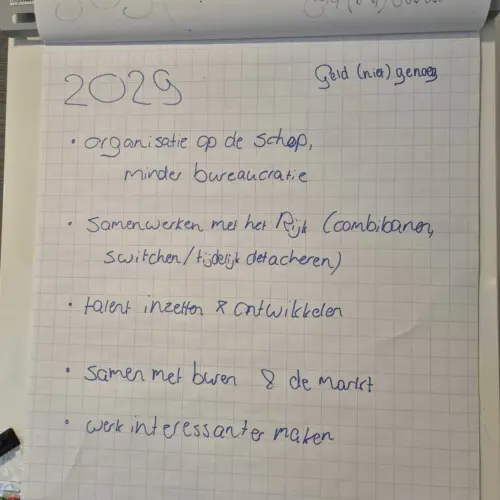 2029
Geld (niet) genoeg
• organisatie op de schop,
minder bureaucratie
• samenwerken met het Rijk (combibanen,
switchen/tijdelijk detacheren)
• talent inzetten & ontwikkelen
• samen met buren & de markt
• werk interessanter maken